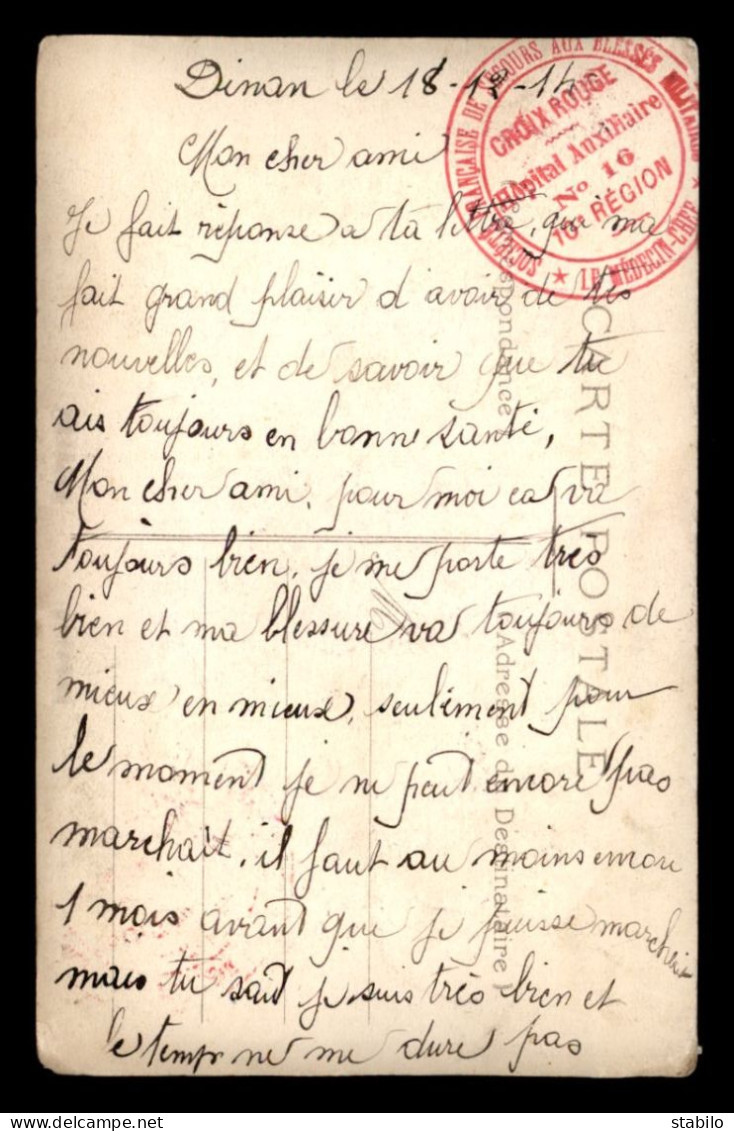 Dinan le 18-12-14
Mon cher ami
Je fait réponse a ta lettre, qui ma
fait grand plaisir d avoir de tes
nouvelles, et de savoir que tu
ais toujours en bonne santé,
Mon cher ami, pour moi ca va
toujours bien, je me porte très
bien et ma blessure va toujours de
mieux en mieux, seulement pour
le moment je ne peut encore pas
marchait, il faut au moins encore
1 mois avant que je puisse marchait
mais tu sait je suis très bien et
le temps ne me dure pas
SOCIÉTÉ FRANÇAISE DE SECOURS AUX BLESSÉS MILITAIRES
CROIX ROUGE
Hôpital Auxiliaire
No 16
10e RÉGION
LE MÉDECIN-CHEF
CARTE POSTALE
Correspondance
Adresse du Destinataire
stabilo-philatelie.com